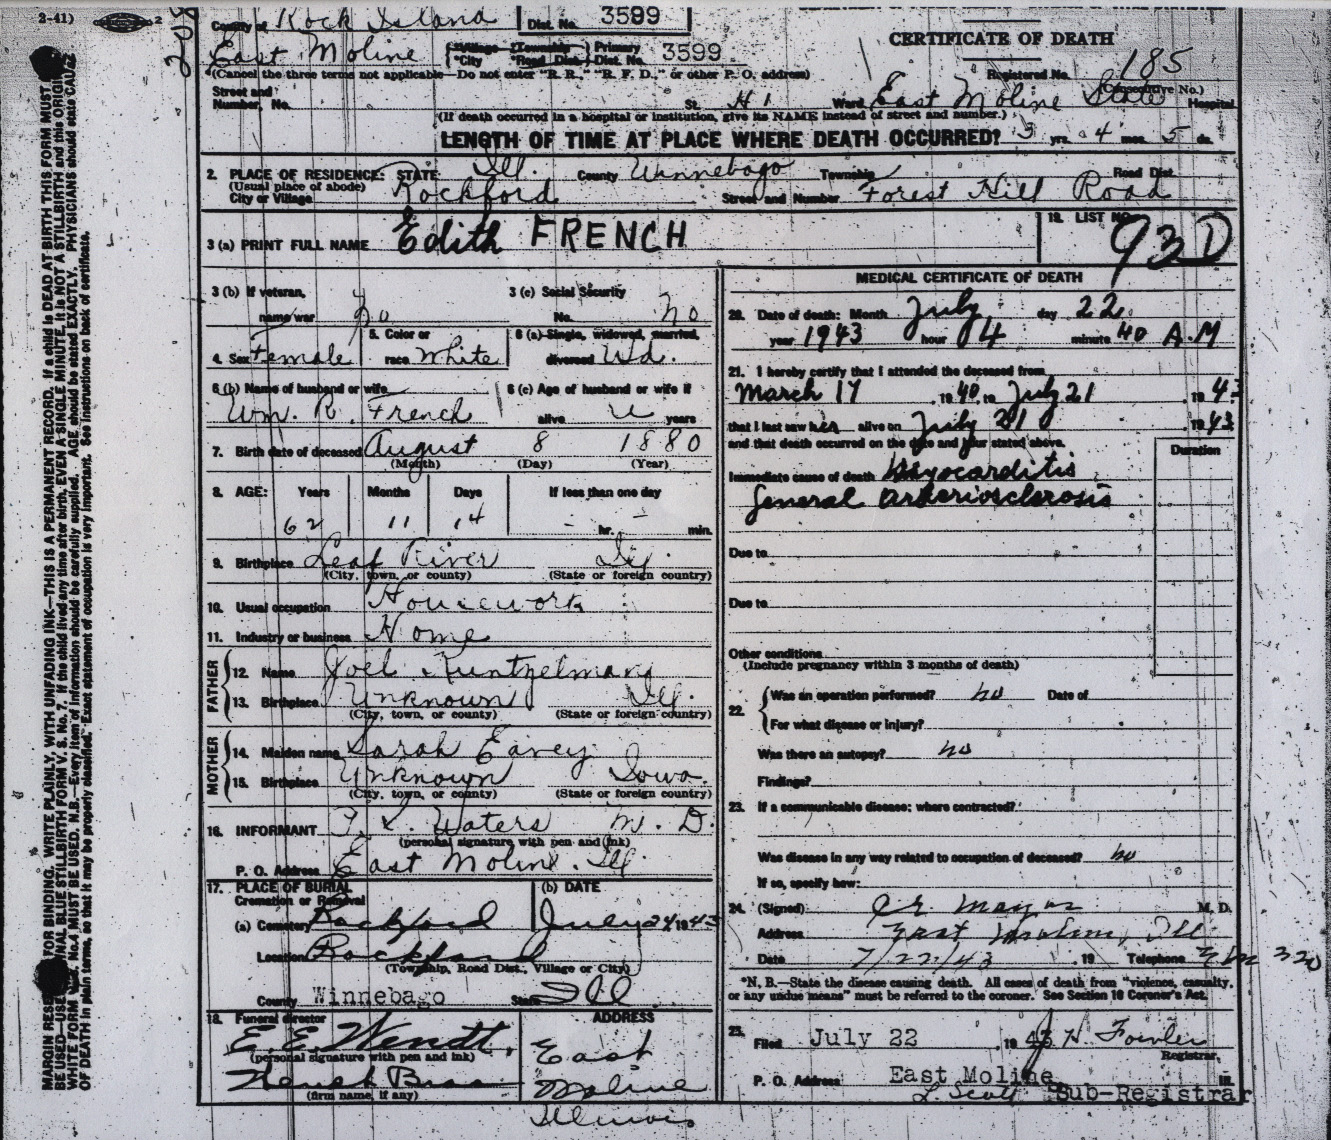 2-41)
2
208
County of Rock Island Dist. No. 3599
East Moline *Village *Township Primary 3599
*City *Road Dist. Dist. No.
CERTIFICATE OF DEATH
Registered No. 185
(Consecutive No.)
(Cancel the three terms not applicable—Do not enter "R. R.," "R. F. D.," or other P. O. address)
Street and
Number, No. St. H 1 Ward East Moline State Hospital
(If death occurred in a hospital or institution, give its NAME instead of street and number.)
LENGTH OF TIME AT PLACE WHERE DEATH OCCURRED? 3 yrs. 4 mos. 5 ds.
2. PLACE OF RESIDENCE: STATE Ill. County Winnebago Township Road Dist.
(Usual place of abode)
City or Village Rockford Street and Number Forest Hill Road
3 (a) PRINT FULL NAME Edith FRENCH
19. LIST NO. 93D
3 (b) If veteran,
name war No
3 (c) Social Security
No. No
4. Sex Female
5. Color or
race White
6 (a) Single, widowed, married,
divorced Wd.
6 (b) Name of husband or wife
Wm. R. French
6 (c) Age of husband or wife if
alive u years
7. Birth date of deceased August 8 1880
(Month) (Day) (Year)
8. AGE: Years Months Days If less than one day
62 11 14 - hr. - min.
9. Birthplace Leaf River Ill
(City, town, or county) (State or foreign country)
10. Usual occupation Housework
11. Industry or business Home
FATHER
12. Name Joel Kuntzelman
13. Birthplace Unknown Ill.
(City, town, or county) (State or foreign country)
MOTHER
14. Maiden name Sarah Eavey
15. Birthplace Unknown Iowa.
(City, town, or county) (State or foreign country)
16. INFORMANT F. L. Waters M. D.
(personal signature with pen and ink)
P. O. Address East Moline. Ill.
17. PLACE OF BURIAL
Cremation or Removal
(b) DATE
(a) Cemetery Rockford July 24 1943
Location Rockford
(Township, Road Dist., Village or City)
County Winnebago State Ill.
18. Funeral director ADDRESS
E. E. Wendt.
(personal signature with pen and ink)
East
Moline
Illinois
(firm name, if any)
MEDICAL CERTIFICATE OF DEATH
20. Date of death: Month July day 22
year 1943 hour 4 minute 40 A.M
21. I hereby certify that I attended the deceased from
March 17, 1940, to July 21, 1943
that I last saw her alive on July 21, 1943
and that death occurred on the date and hour stated above.
Duration
Immediate cause of death Myocarditis
General arteriosclerosis
Due to
Due to
Other conditions
(Include pregnancy within 3 months of death)
22. Was an operation performed? no Date of
For what disease or injury?
Was there an autopsy? no
Findings?
23. If a communicable disease; where contracted?
Was disease in any way related to occupation of deceased? no
If so, specify how:
24. (Signed) M. D.
Address East Moline, Ill
Date 7/22/43, 19 Telephone E M 320
*N. B.—State the disease causing death. All cases of death from "violence, casualty,
or any undue means" must be referred to the coroner. See Section 10 Coroner's Act.
25.
Filed July 22, 1943 J H Fowler
Registrar.
P. O. Address East Moline Ill.
L. Scott Sub-Registrar
MARGIN RESERVED FOR BINDING. WRITE PLAINLY, WITH UNFADING INK—THIS IS A PERMANENT RECORD. If a child is DEAD AT BIRTH THIS FORM MUST
BE USED—USE ORIGINAL BLUE STILLBIRTH FORM V. S. No. 7. If the child lived any time after birth, EVEN A SINGLE MINUTE, it is NOT A STILLBIRTH and this ORIGINAL
WHITE FORM No. 4 MUST BE USED. N.B.—Every item of information should be carefully supplied. AGE should be stated EXACTLY. PHYSICIANS should state CAUSE
OF DEATH in plain terms, so that it may be properly classified. Exact statement of occupation is very important. See instructions on back of certificate.